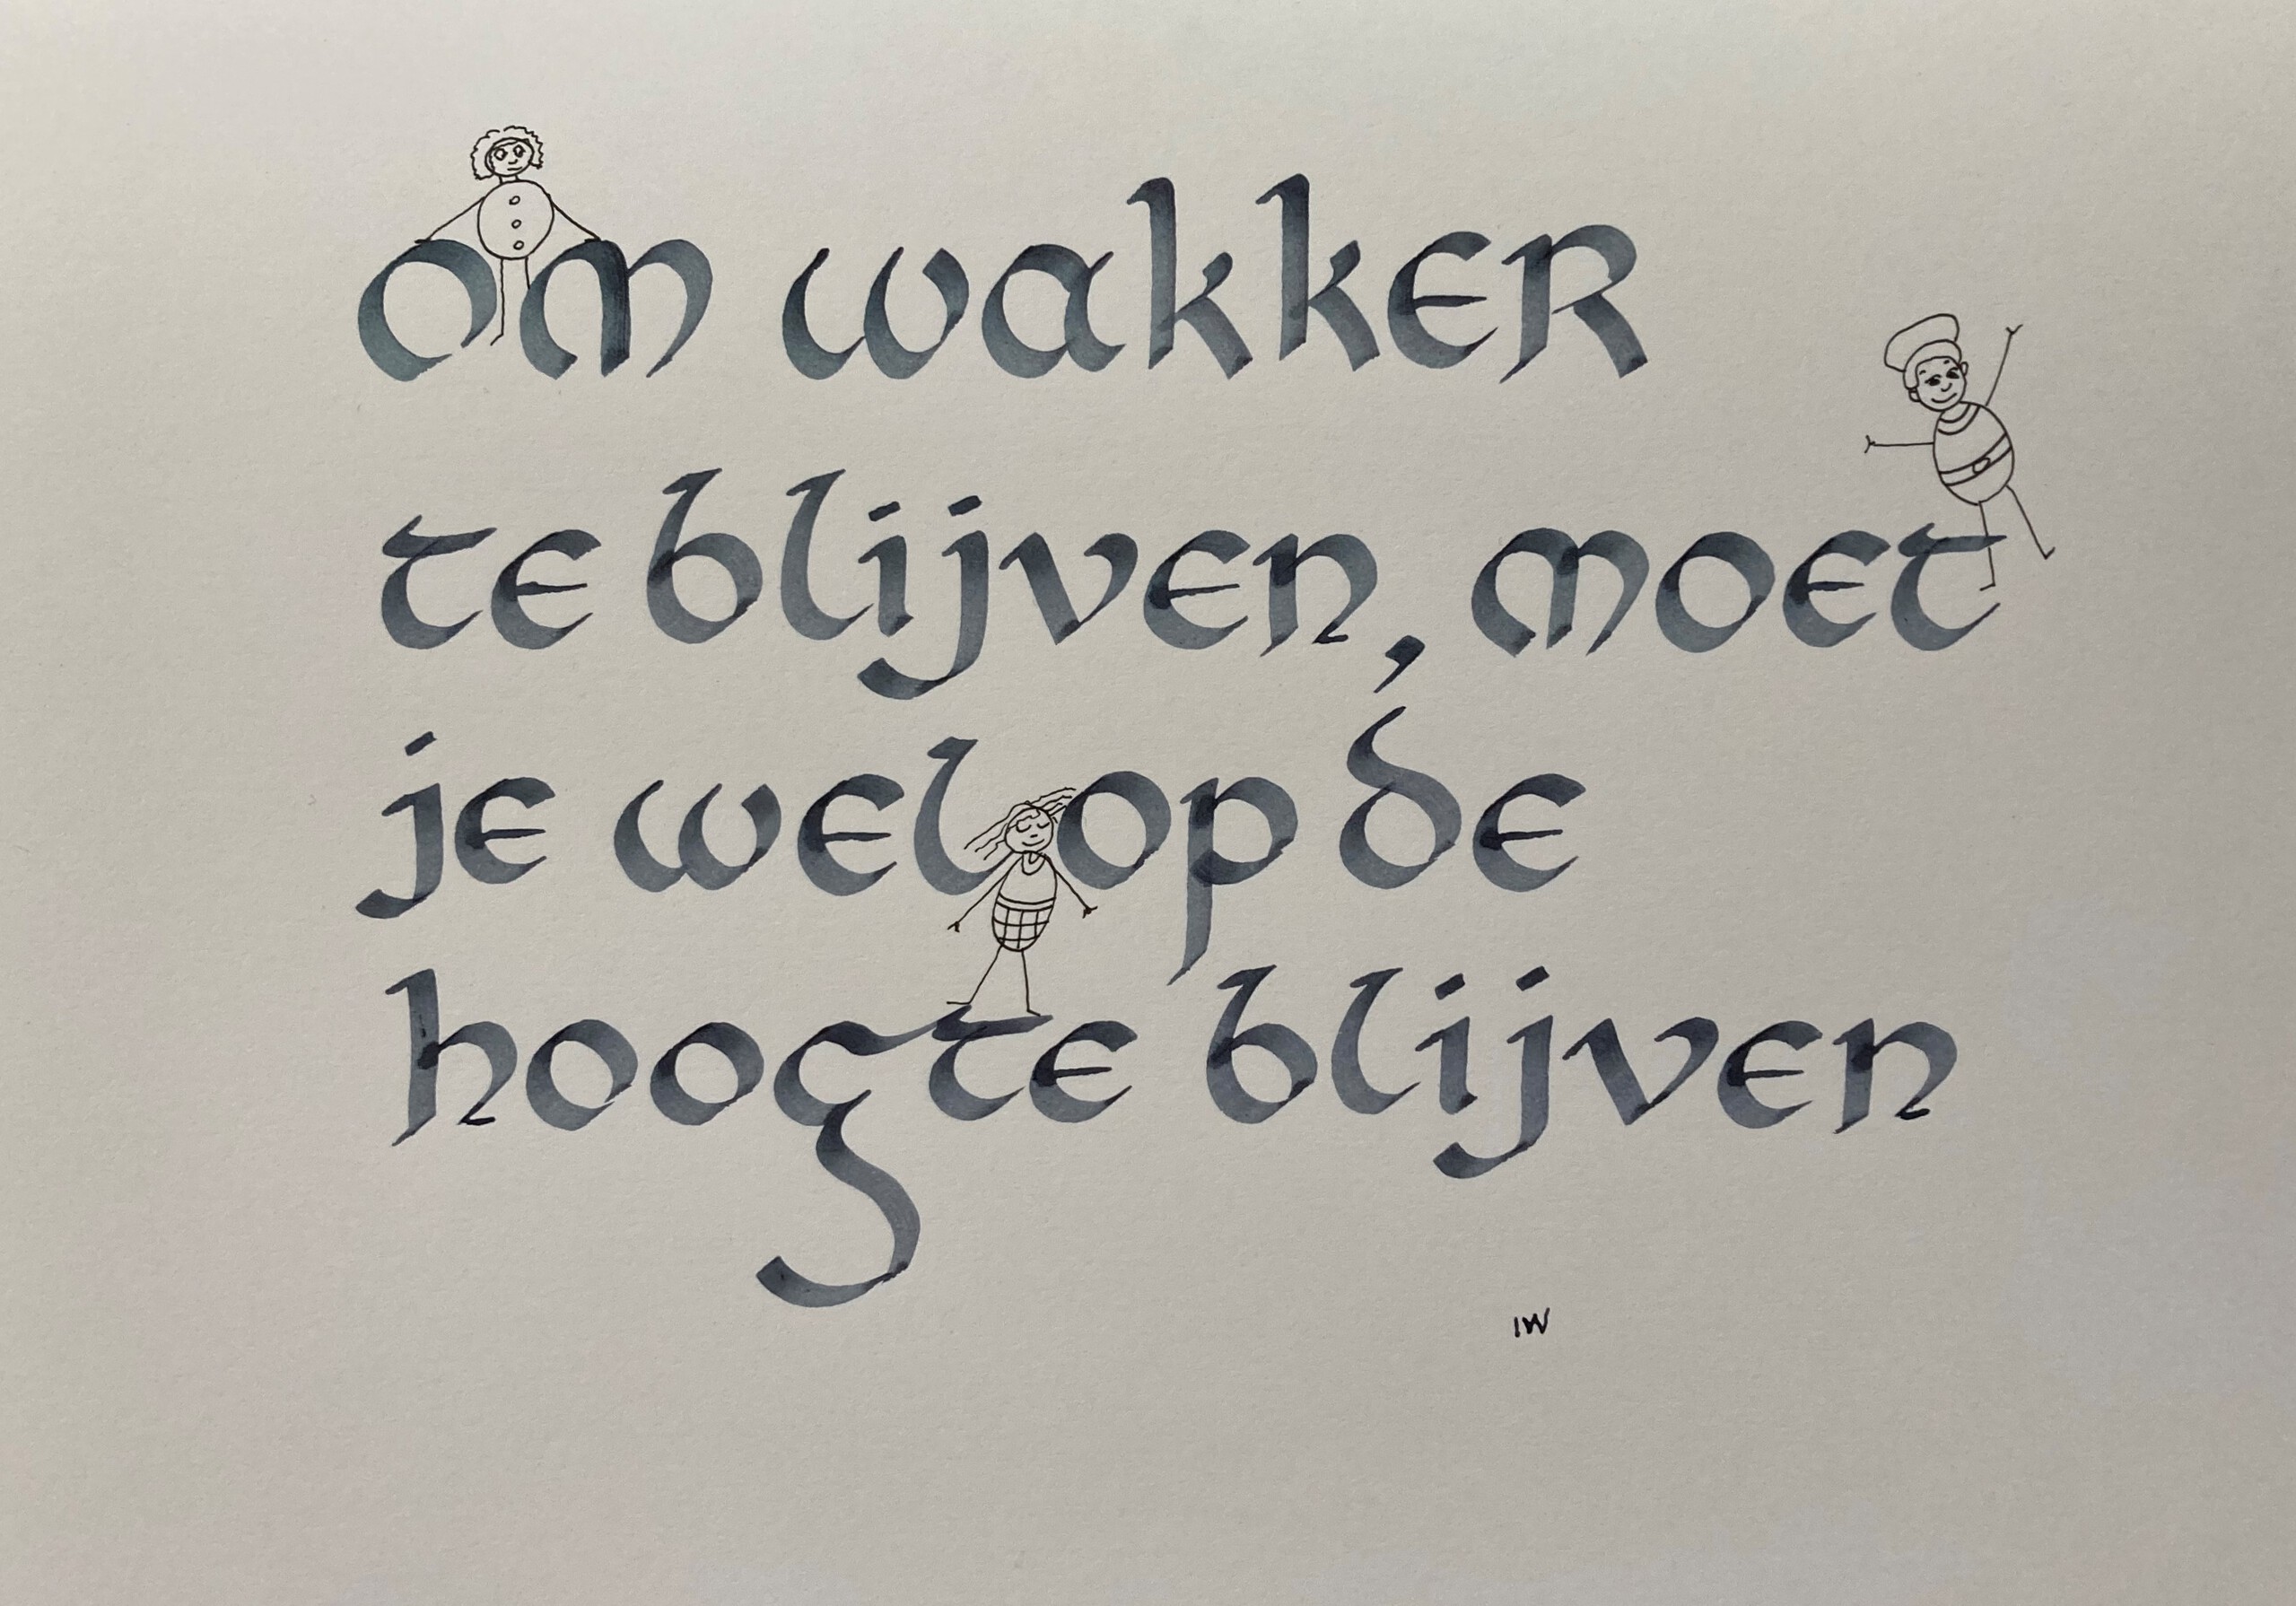 om wakker
te blijven, moet
je wel op de
hoogte blijven
IW